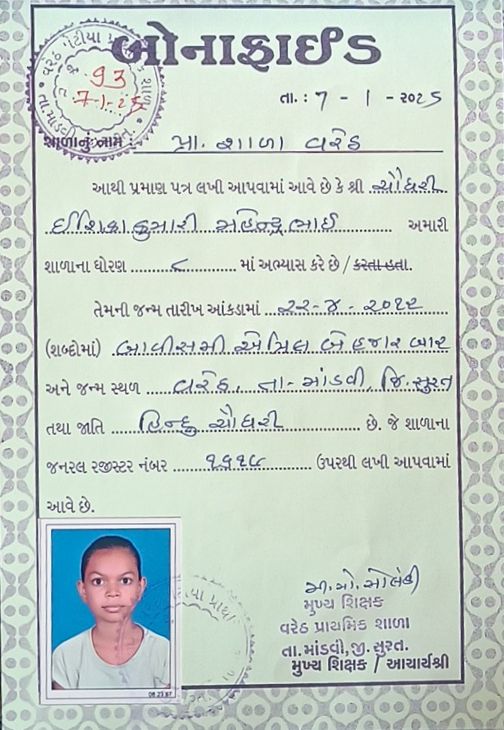 બોનાફાઈડ
93
7-1-25
તા. : 7 - 1 - ૨૦૨૫
શાળાનું નામ : પ્રા. શાળા વરેઠ
આથી પ્રમાણ પત્ર લખી આપવામાં આવે છે કે શ્રી ચૌધરી
ઈશિકાકુમારી મહેન્દ્રભાઈ અમારી
શાળાના ધોરણ ૮ માં અભ્યાસ કરે છે / કરતા હતા.
તેમની જન્મ તારીખ આંકડામાં ૨૨-૪-૨૦૧૨
(શબ્દોમાં) બાવીસમી એપ્રિલ બે હજાર બાર
અને જન્મ સ્થળ વરેઠ, તા- માંડવી, જિ. સુરત
તથા જાતિ હિન્દુ ચૌધરી છે. જે શાળાના
જનરલ રજીસ્ટર નંબર ઉપરથી લખી આપવામાં
આવે છે.
મુખ્ય શિક્ષક
વરેઠ પ્રાથમિક શાળા
તા. માંડવી, જી. સુરત.
મુખ્ય શિક્ષક / આચાર્યશ્રી